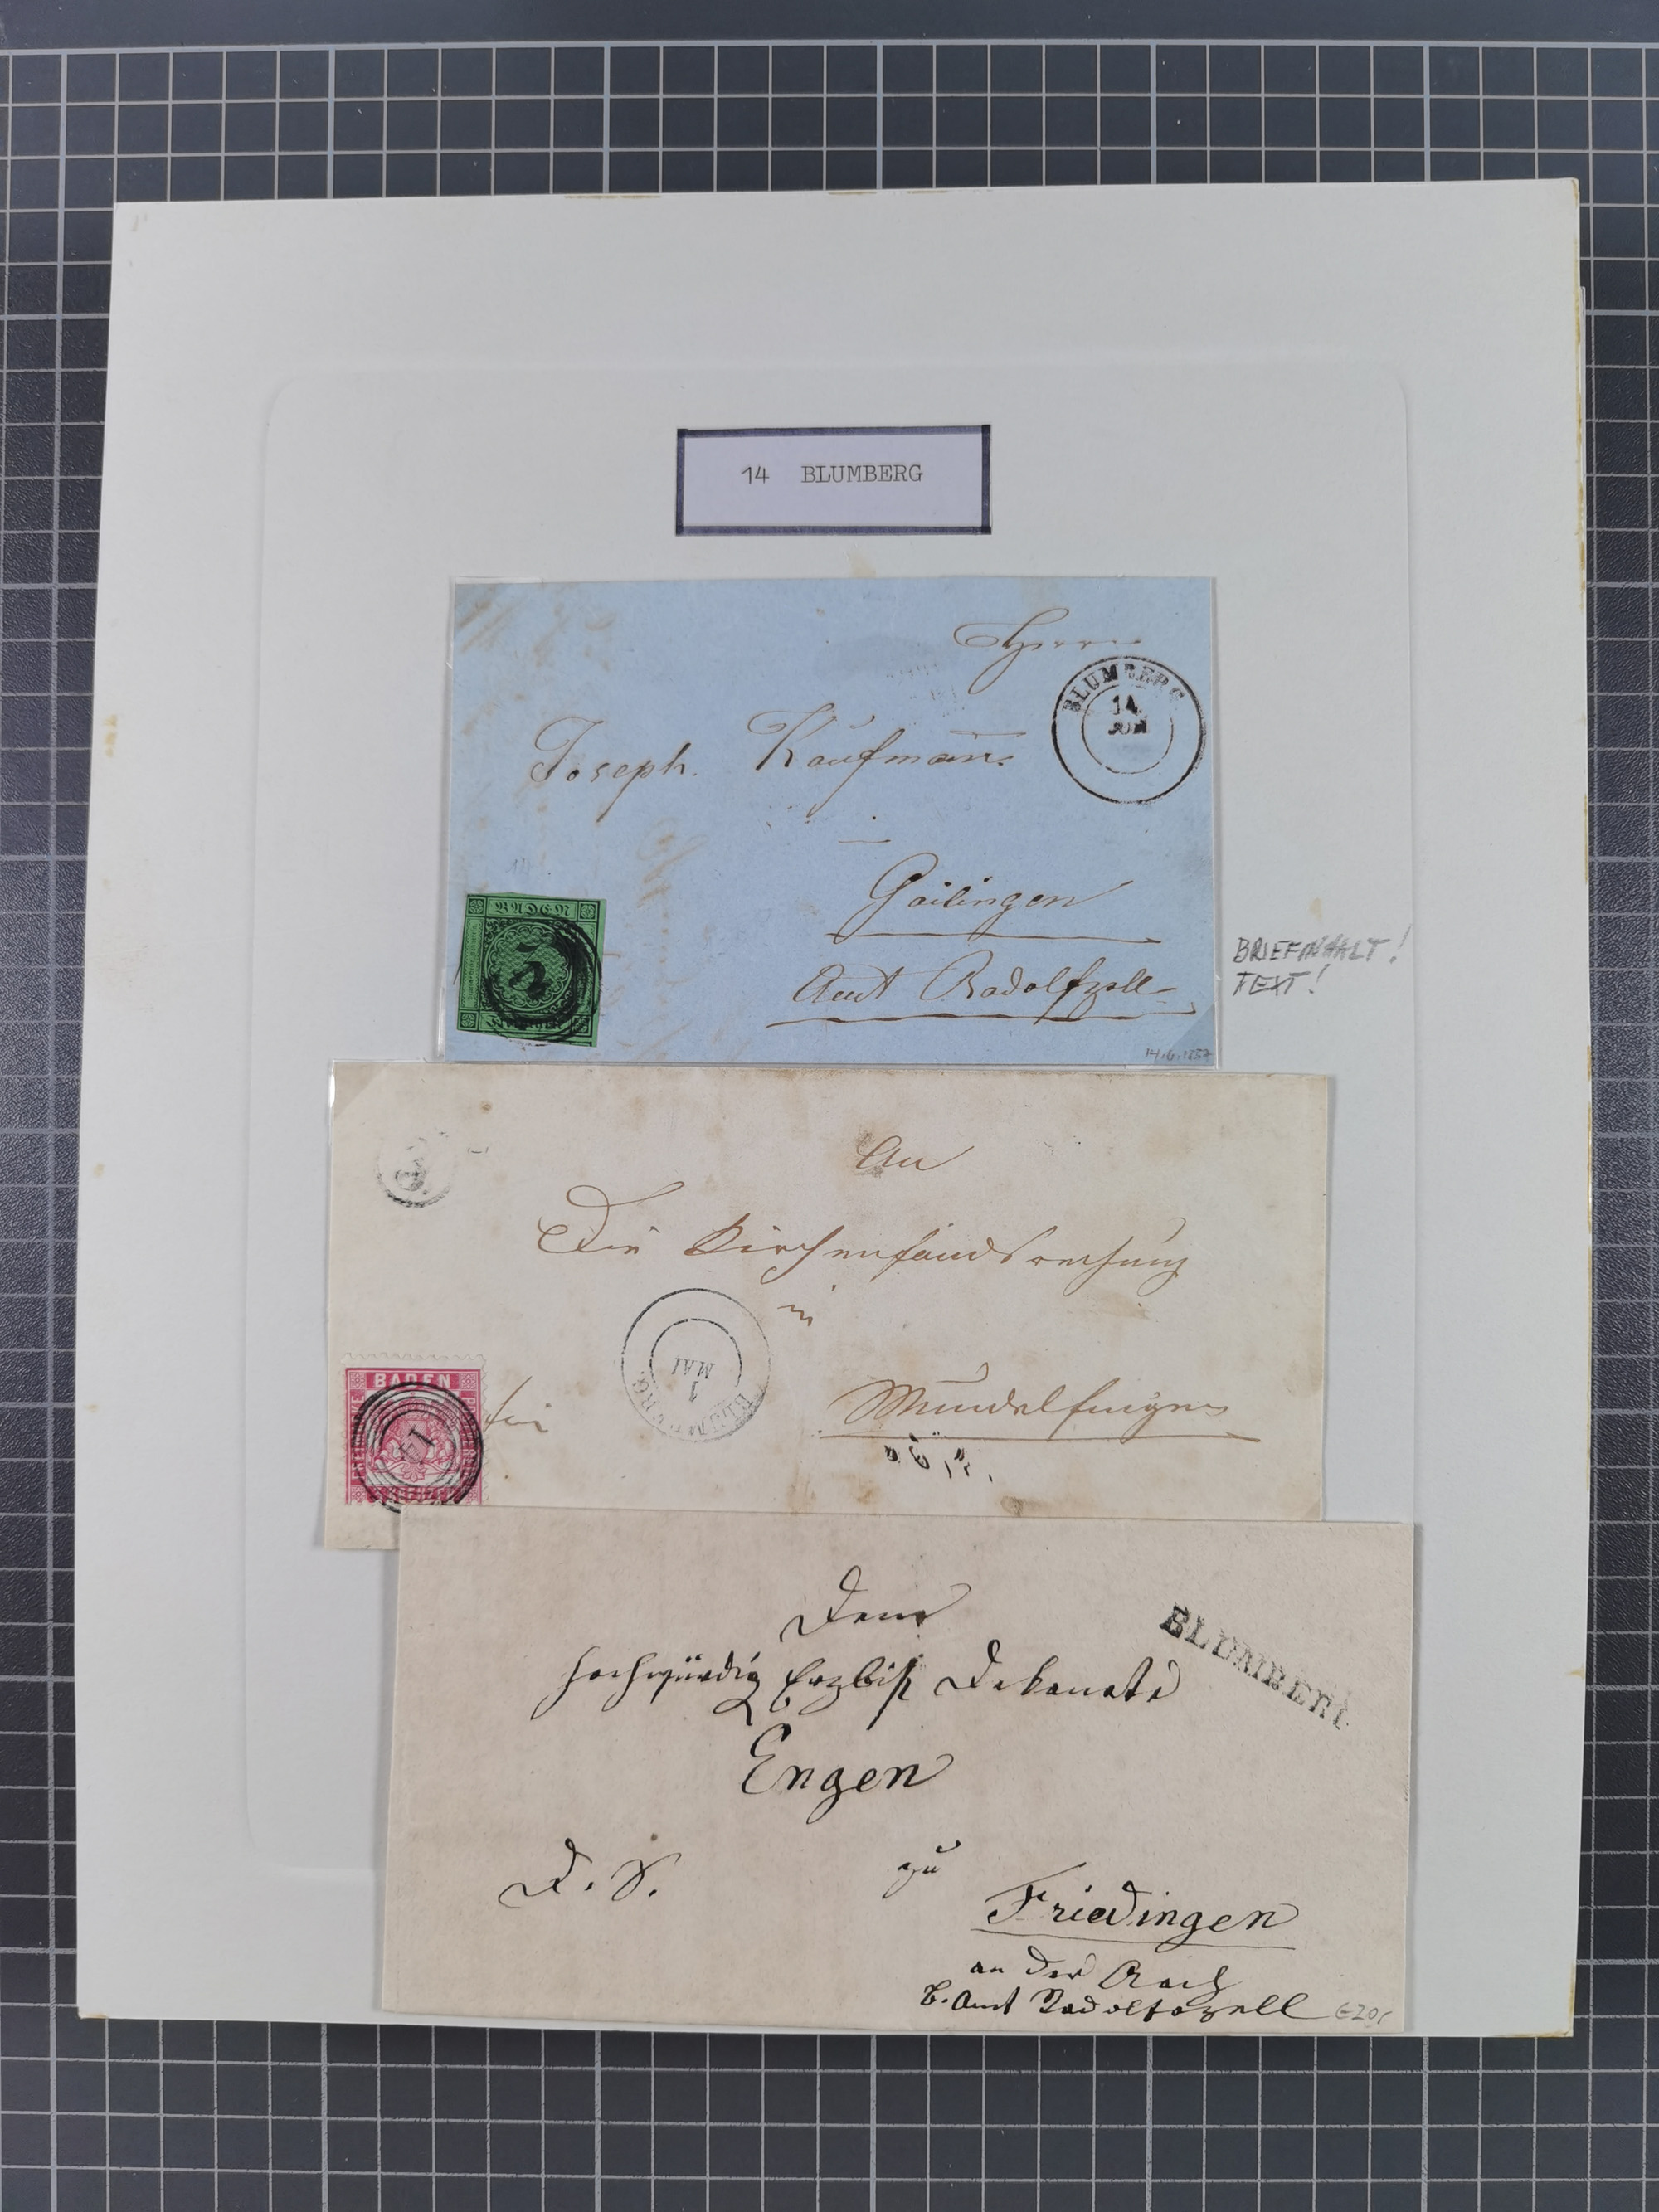 14 BLUMBERG
Herrn
BLUMBERG
14
JUN
Joseph. Kaufmann.
Gailingen
Amt Radolfzell
BADEN
14.6.1857
BRIEFINHALT!
TEXT!
An
Die
in
BLUMBERG
3
MAI
BADEN
14
Mundelfingen
Dem
hochwürdig Erzbis Dekanate
BLUMBERG
Engen
D. S.
zu
Friedingen
an der Aach
B. Amt Radolfszell